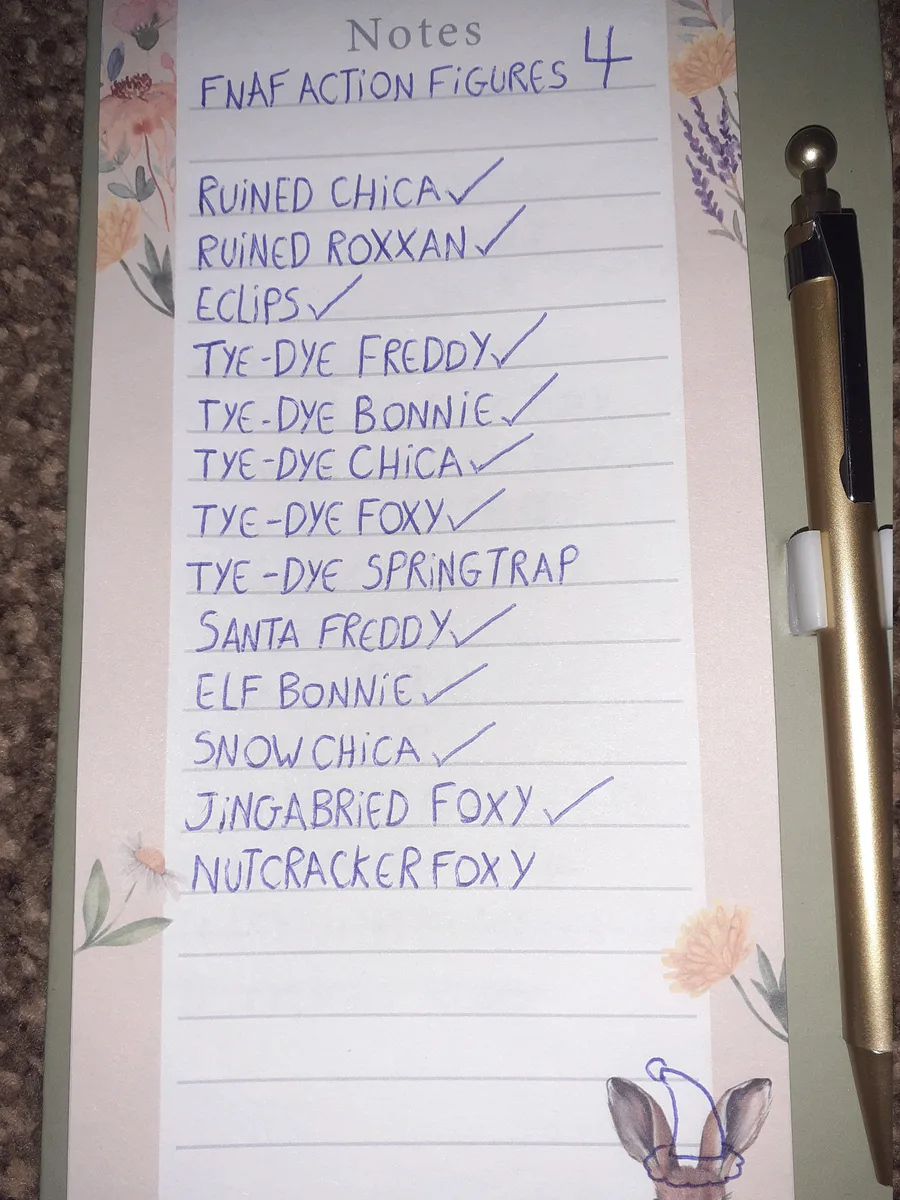 Notes
FNAF ACTION FIGURES 4
RUINED CHICA ✓
RUINED ROXXAN ✓
ECLIPS ✓
TYE-DYE FREDDY ✓
TYE-DYE BONNIE ✓
TYE-DYE CHICA ✓
TYE-DYE FOXY ✓
TYE-DYE SPRINGTRAP
SANTA FREDDY ✓
ELF BONNIE ✓
SNOW CHICA ✓
JINGABRIED FOXY ✓
NUTCRACKER FOXY